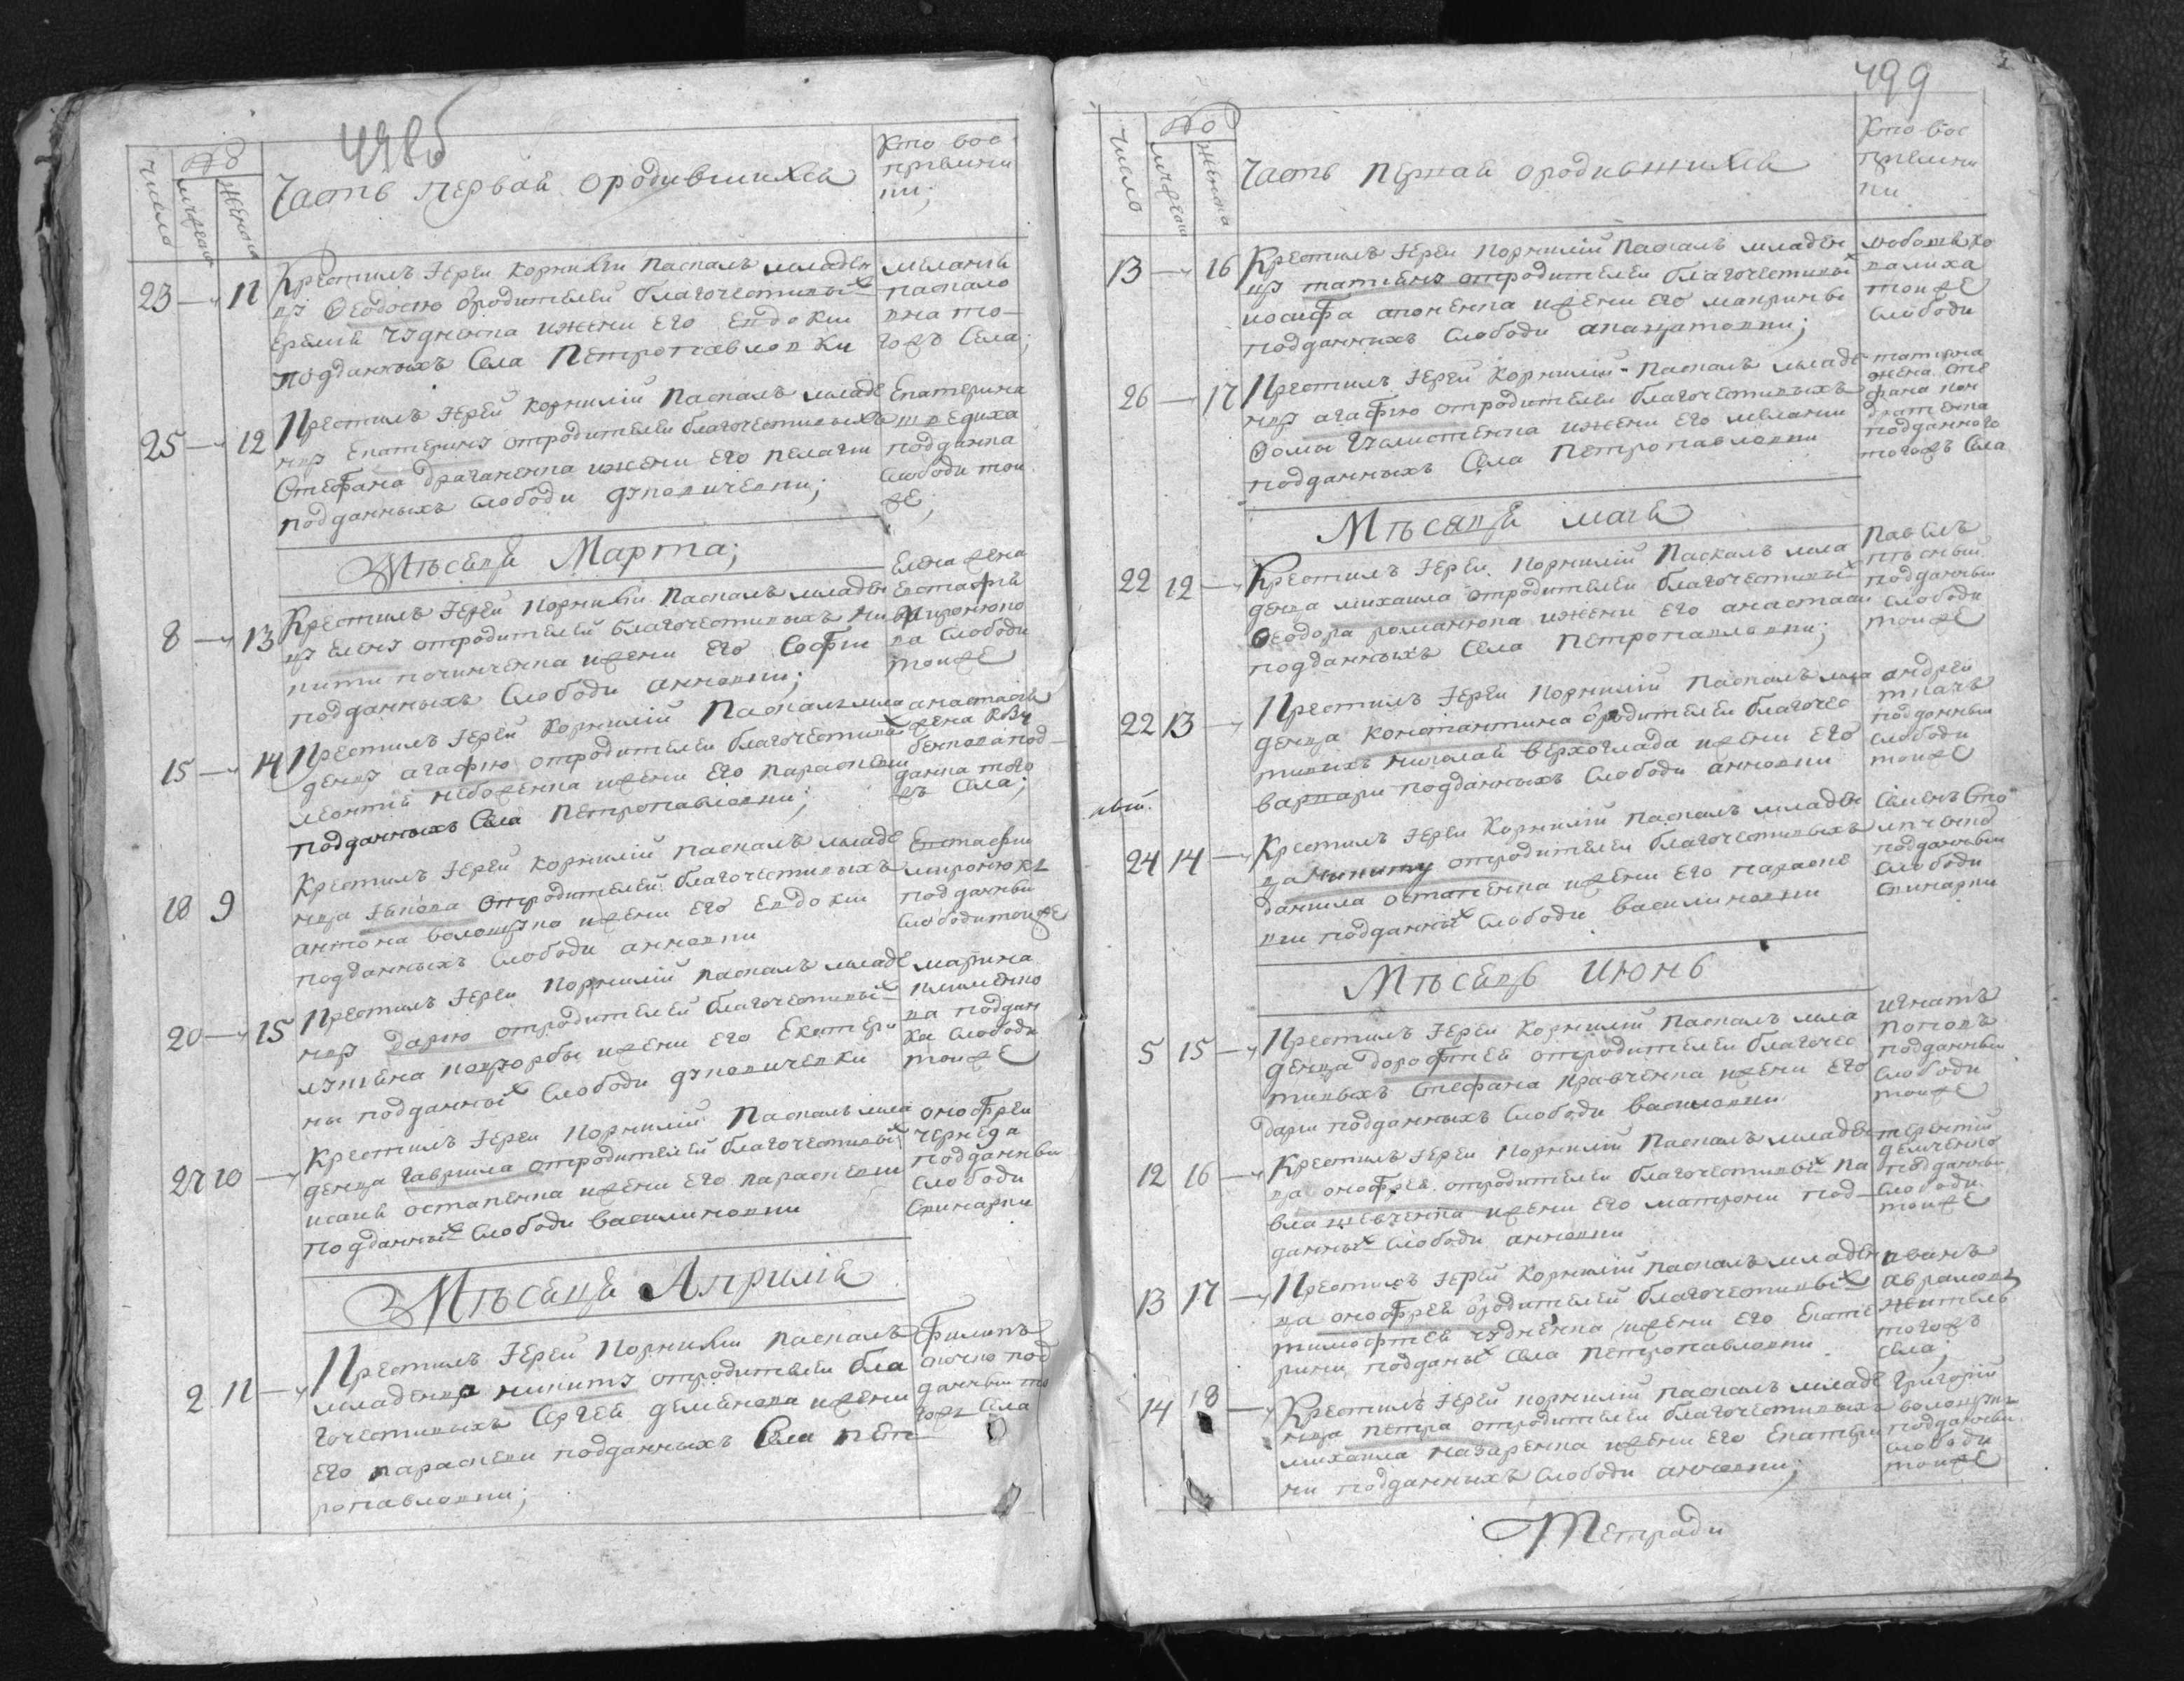 498б
число
но
мужеска
женска
Часть Первая ородившихся
Кто вос
приемни
ки;
23 11
Крестилъ Іерей Корнилій Паскаль младен
цу Ѳеодосію ѿродителей благочестивыхъ
Еремія чуднѣнка ижени Его Евдокии
подданныхъ Села Петропавловки
меланія
паскало
вна то
гожъ Села;
25 12
Крестилъ Іерей Корнилій Паскаль младе
нцу Екатерину отродителей благочестивыхъ
Стефана драганенка ижени Его пелагии
подданныхъ Слободи дуповичевки;
Екатерина
шведиха
подданка
Слободи тои
же;
Мѣсяця Марта;
8 13
Крестилъ Іерей Корнилій Паскаль младен
цу елену отродителей благочестивыхъ Ни
кити починченка ижени Его Софии
подданныхъ Слободи анновки;
Елена жена
Евстафия
миронюко
ва Слободи
тоиже
15 14
Крестилъ Іерей Корнилій Паскаль мла
денцу агафию отродителей благочестивыхъ
леонтия небоженка ижени Его параскеви
подданныхъ Села Петропавловки;
анастасия
жена
под
данка того
жъ Села;
18 9
Крестилъ Іерей Корнилій Паскаль младе
нца Іакова отродителей благочестивыхъ
антона волошуко ижени Его Евдокии
подданныхъ Слободи анновки
Евстафии
миронюкъ
подданныи
Слободи тоиже
20 15
Крестилъ Іерей Корнилій Паскаль младе
нцу дарию отродителей благочестивыхъ
ижени Его Екатери
ни подданныхъ Слободи дуповичевки
марина
клименко
ва поддан
ка Слободи
тоиже
27 10
Крестилъ Іерей Корнилій Паскаль мла
денца гавриила отродителей благочестивыхъ
исаия остапенка ижени Его параскеви
подданныхъ Слободи василиновки
онофреи
чернеда
подданныи
Слободи
Свинарки
Мѣсяця Априлія
2 11
Крестилъ Іерей Корнилій Паскаль
младенца никиту отродителей бла
гочестивыхъ Сергея деменова ижени
Его параскеви подданныхъ Села пет
ропавловки;
Филипъ
под
данныи то
гожъ Села
499
число
но
мужеска
женска
Часть первая ородившихся
Кто вос
приемни
ки
13 16
Крестилъ Іерей Корнилій Паскаль младен
цу татияну отродителей благочестивыхъ
иосифа ижени Его макрины
подданныхъ Слободи
ковалиха
тоиже
Слободи
26 17
Крестилъ Іерей Корнилій Паскаль младе
нцу агафию отродителей благочестивыхъ
Ѳомы ижени Его мелании
подданныхъ Села Петропавловки
татияна
жена Сте
фана кон
дратенка
подданного
тогожъ Села
Мѣсяця маія
22 12
Крестилъ Іерей Корнилій Паскаль мла
денца михаила отродителей благочестивыхъ
Ѳеодора романюка ижени Его анастасии
подданныхъ Села Петропавловки;
Павелъ
пѣсный
подданныи
Слободи
тоиже
22 13
Крестилъ Іерей Корнилій Паскаль мла
денца константина ѿродителей благочес
тивихъ николая верхоглада ижени Его
варвари подданныхъ Слободи анновки
андреи
ткачъ
подданныи
Слободи
тоиже
24 14
Крестилъ Іерей Корнилій Паскаль младен
ца никиту отродителей благочестивыхъ
данила остапенка ижени Его параске
вии подданныхъ Слободи василиновки
Семенъ
подданныи
Слободи
Свинарки
Мѣсяць Июнь
5 15
Крестилъ Іерей Корнилій Паскаль мла
денца дорофтея отродителей благочес
тивыхъ Стефана кравченка ижени Его
дарии подданныхъ Слободи василовки
игнатъ
поповъ
подданныи
Слободи
тоиже
12 16
Крестилъ Іерей Корнилій Паскаль младен
ца онофрея отродителей благочестивыхъ па
вла шевченка ижени Его матрони под
данныхъ Слободи анновки
терентій
демченко
подданныи
Слободи
тоиже
13 17
Крестилъ Іерей Корнилій Паскаль младен
ца онофрея ѿродителей благочестивыхъ
тимофтея чуднѣнка ижени Его Екате
рини подданыхъ Села Петропавловки
иванъ
аврамовъ
житель
тогожъ
Села;
14 18
Крестилъ Іерей Корнилій Паскаль младе
нца петра отродителей благочестивыхъ
михаила назаренка ижени Его Екатери
ни подданныхъ Слободи анновки;
григорій
подданныи
Слободи
тоиже
Тетради